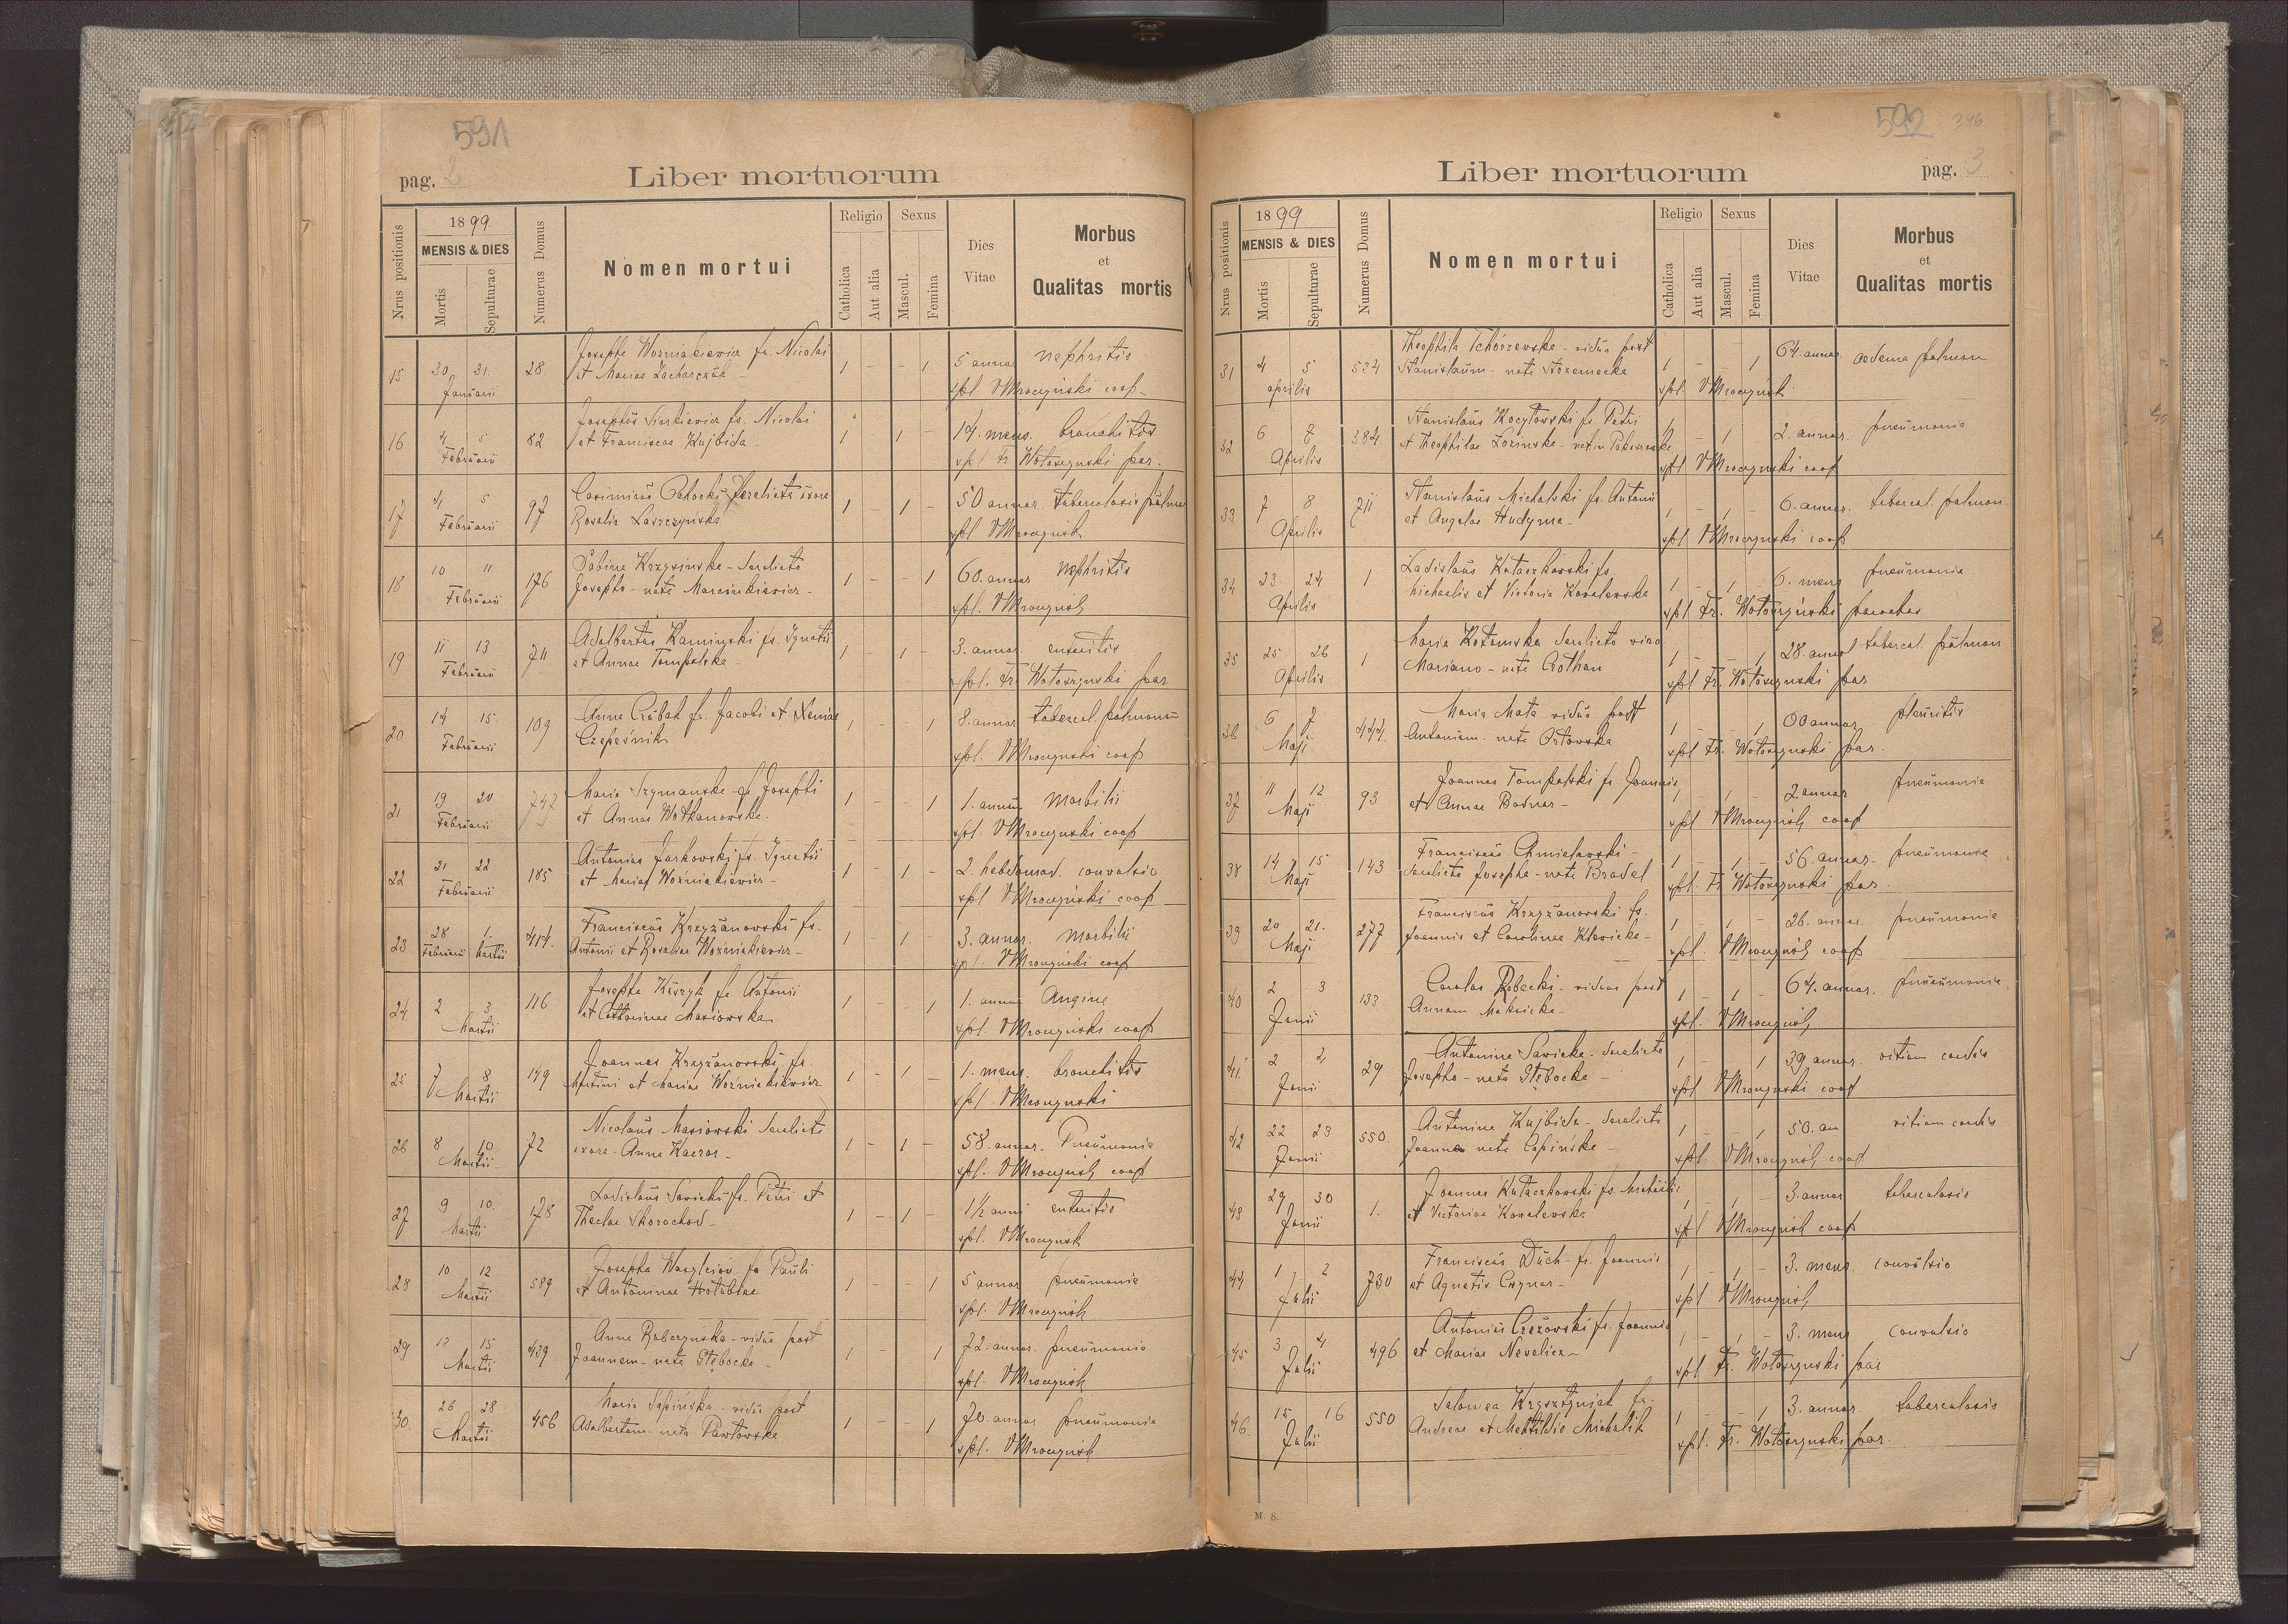 591
pag. 2
Liber mortuorum
Nrus positionis
1899
MENSIS & DIES
Mortis
Sepulturae
Numerus Domus
Nomen mortui
Religio
Catholica
Aut alia
Sexus
Mascul.
Femina
Dies
Vitae
Morbus
et
Qualitas mortis
15 30 31. 28. Josepha Woźniakiewicz fa. Nicolai 1 - - 1 5 annor nephritis
Januarii et Mariae
spl. VMroczyński coop
16 4 5 82 Josephus fs. Nicolai 1 - 1 - 14. mens. bronchitis
Februarii et Franciscae Kujbida
spl Fr Wołoszynski par.
17 4 5 97 Casimirus derelicta uxore 1 - 1 - 50 annor tuberculosis pulmon
Februarii Rosalia
spl VMroczyńsk
18 10 11 176 Sabina derelicto 1 - - 1 60. annor nephritis
Februarii Josepho - nata Marcinkiewicz -
spl. VMroczyńsk
19 11 13 711 Adalbertus Kaminski fs. Ignatii 1 - 1 - 3. annor. enteritis
Februarii et Annae Tompalska
spl. Fr. Wołoszynski par
20 14 15. 109 Anna fa. Jacobi et 1 - - 1 8. annor tubercul. pulmonum
Februarii
spl. VMroczynski coop
21 19 20 747 Maria Szymanska fa Josephi 1 - - 1 1. annum Morbilli
Februarii et Annae
spl. VMroczynski coop
22 21 22 185 Antonius Jarkowski fs. Ignatii 1 - 1 - 2. hebdomad. convulsio
Februarii et Mariae Woźniakiewicz -
spl VMroczyński coop
23 28 1. 414. Franciscus Krzyżanowski fs. 1 - 1 - 3. annor. Morbilli
Februarii Martii Antonii et Rosaliae Woźniakiewicz -
spl. VMroczyński coop
24. 2 3 116 Josepha fa Antonii 1 - - 1 1. annum Angina
Martii et Catharinae Masiowska
spl. VMroczyński coop
25 7 8 149 Joannes Krzyżanowski fs. 1 - 1 - 1. mens. bronchitis
Martii Martini et Mariae Woźniakiewicz
spl VMroczynski
26 8 10 72 Nicolaus Masiowski derelicta 1 - 1 - 58. annor. Pneumonia
Martii uxore - Anna Kaczor -
spl. VMroczyńsk coop
27 9 10. 178 Ladislaus Sawicki fs. Petri et 1 - 1 - 1½ anni enteritis
Martii Theclae Skorochod -
spl. VMroczyńsk
28 10 12 589 Josepha fa Pauli 1 - - 1 5 annor pneumonia
Martii et Antoninae
spl. VMroczyńsk
29 12 15 439 Anna Rabczynska - vidua post 1 - - 1 72 annor. pneumonia
Martii Joannem - nata Głębocka -
spl. VMroczyńsk
30. 26 28 456 Maria - vidua post 1 - - 1 70. annor pneumonia
Martii Adalbertum nata Pawłowska
spl. VMroczyńsk
592
346
pag. 3
Liber mortuorum
Nrus positionis
1899
MENSIS & DIES
Mortis
Sepulturae
Numerus Domus
Nomen mortui
Religio
Catholica
Aut alia
Sexus
Mascul.
Femina
Dies
Vitae
Morbus
et
Qualitas mortis
31 4 5 524 Theophila Tchorzewska - vidua post 1 - - 1 64. annor. oedema pulmon
aprilis Stanislaum - nata
spl. VMroczyńsk
32 6 7 384 Stanislaus fs. Petri 1 - 1 - 2. annor. pneumonia
Aprilis et Theophilae
spl VMroczynski coop
33 7 8 711 Stanislaus Michalski fs. Antonii 1 - 1 - 6. annor. tubercul. pulmon.
Aprilis et Angelae Hudyma -
spl VMroczynski coop
34 23 24 1 Ladislaus Kutaczkowski fs. 1 - 1 - 6. mens pneumonia
Aprilis Michaelis et Victoria Kowalewska
spl Fr. Wołoszyński parochus
35 25 26 1 Maria derelicto viro 1 - - 1 28. annor tubercul. pulmon
Aprilis Mariano - nata
spl Fr. Wołoszynski par
36 6 7 444. Maria Mata vidua post 1 - - 1 60 annor pleuritis
Maji Antonium - nata Orłowska
spl Fr. Wołoszynski par.
37 11 12 93 Joannes Tompalski fs Joannis 1 - 1 - 2 annor pneumonia
Maji et Annae Bodnar -
spl VMroczyńsk coop
38 14 15 143 Franciscus Chmielowski - 1 - 1 - 56. annor. pneumonia
Maji derelicta Josepha - nata Bradel
spl. Fr Wołoszynski par.
39 20 21. 277 Franciscus Krzyżanowski fs. 1 - 1 - 26. annor. pneumonia
Maji Joannis et Carolinae
spl. VMroczyńsk coop
40 2 3 133 Carolus Rębecki - viduus post 1 - 1 - 64. annor. pneumonia.
Junii Annam
spl. VMroczyńsk
41. 2 4 29 Antonina Sawicka - derelicto 1 - - 1 39 annor. vitium cordis
Junii Josepho - nata Głębocka -
spl VMroczynski coop
42 22 23 550. Antonina Kujbida - derelicto 1 - - 1 50. an vitium cordis
Junii Joanne nata
spl. VMroczyńsk coop
43 29 30 1. Joannes Kutaczkowski fs. Michaelis 1 - 1 - 3. annor tuberculosis
Junii et Victoriae Kowalewska
spl VMroczyńsk coop
44 1 2 730 Franciscus Duch - fs. Joannis 1 - 1 - 3. mens. convulsio
Julii et Agnetis
spl VMroczyńsk
45 3 4 496 Antonius Czeżowski fs. Joannis 1 - 1 - 3. mens convulsio
Julii et Mariae
spl Fr. Wołoszynski par
46. 15 16 550 Salomea fa. 1 - - 1 3. annor. tuberculosis
Julii Andreae et Mechtildis Michalik
spl. Fr. Wołoszynski par.
M. 8.